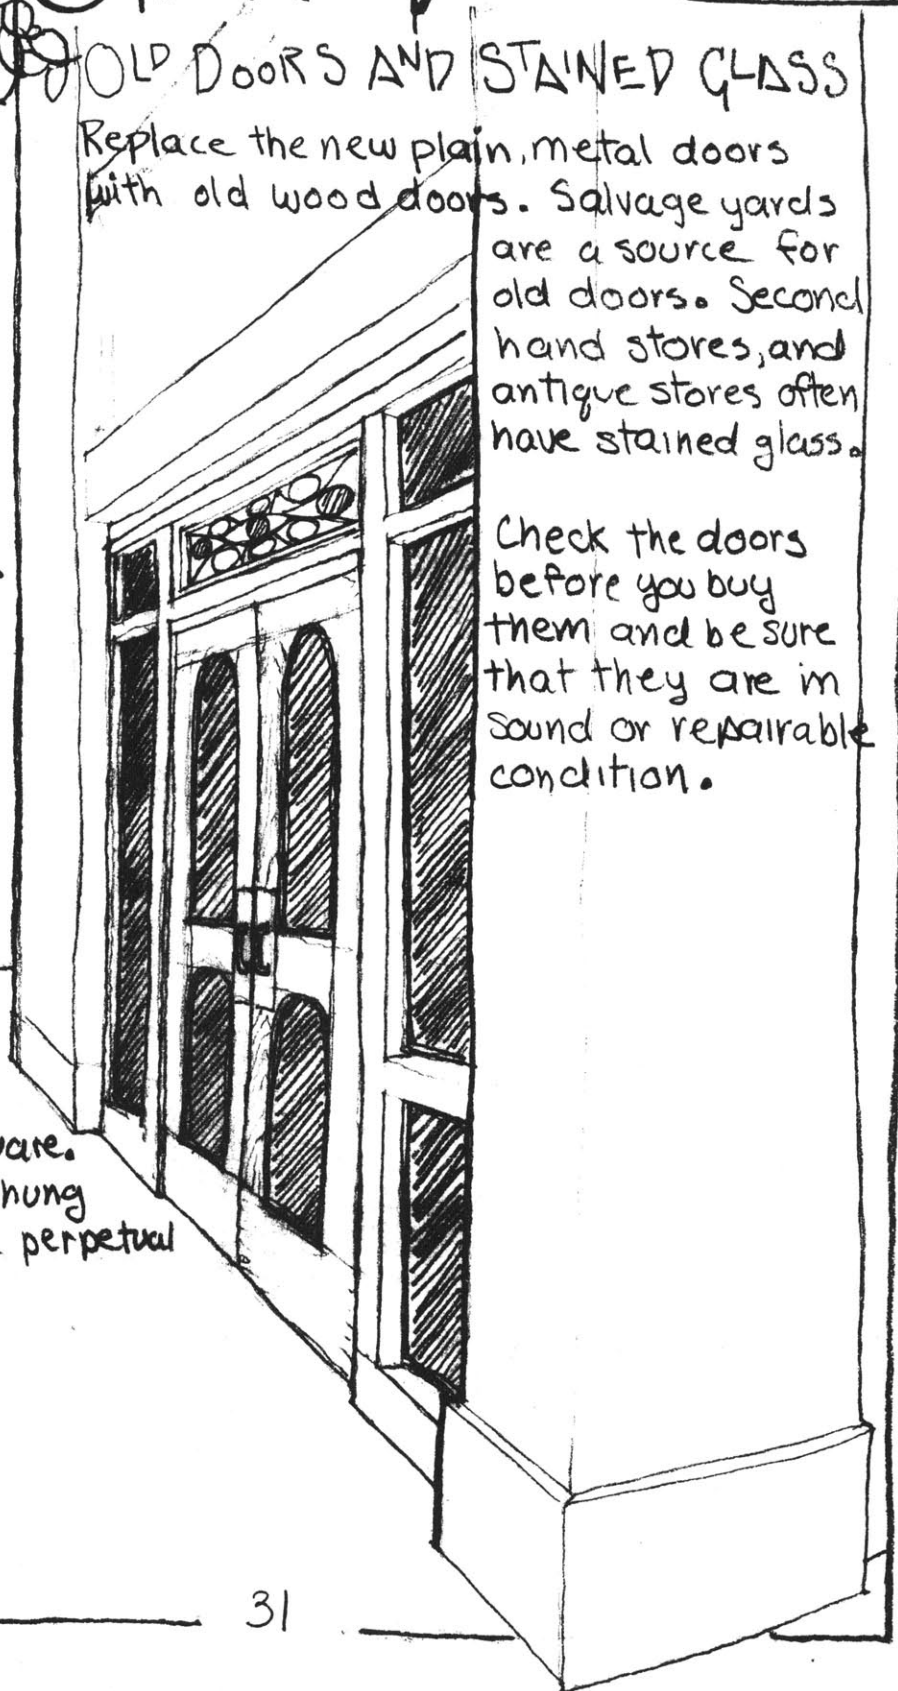 OLD DOORS AND STAINED GLASS
Replace the new plain, metal doors
with old wood doors. Salvage yards
are a source for
old doors. Second
hand stores, and
antique stores often
have stained glass.
Check the doors
before you buy
them and be sure
that they are in
sound or repairable
condition.
hung
perpetual
31